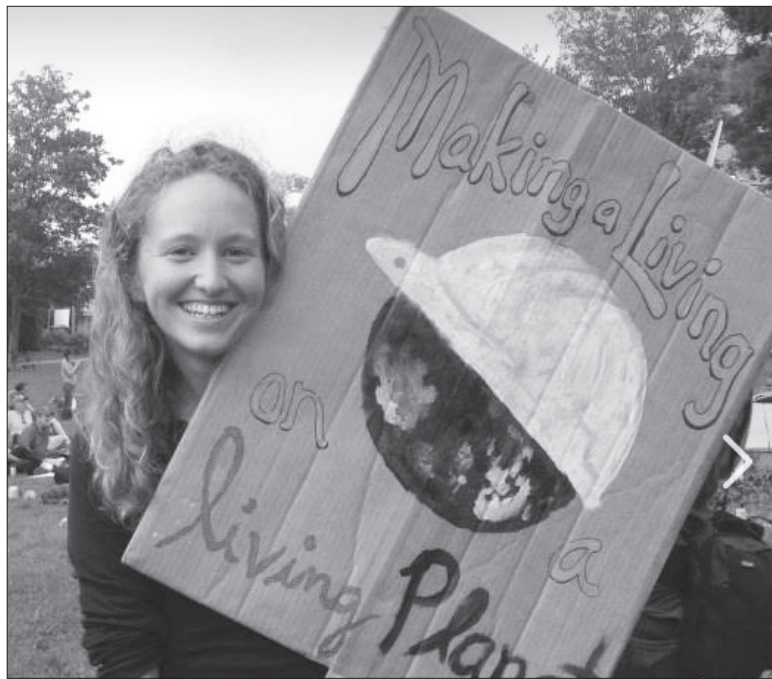 Making a Living
on a
living Planet